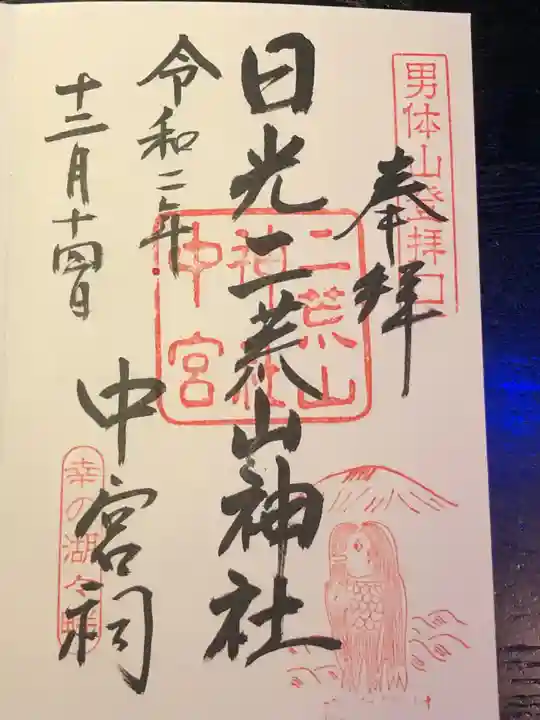 男体山登拝口
奉拝
日光二荒山神社
二荒山
神社
中宮
中宮祠
令和二年
十二月十四日
幸の湖